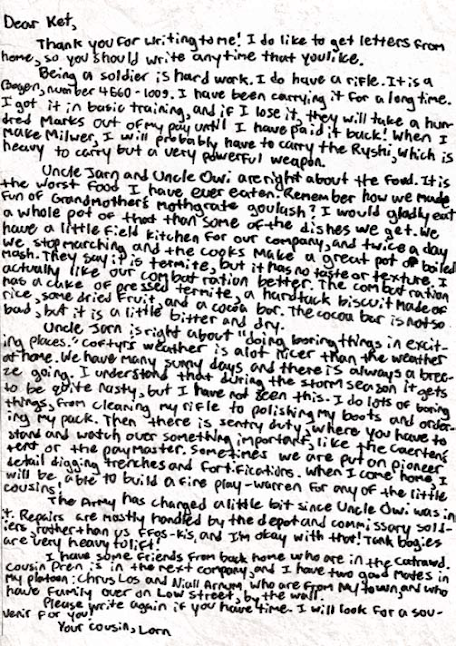 Dear Ket,
Thank you for writing to me! I do like to get letters from
home, so you should write anytime that you like.
Being a soldier is hard work. I do have a rifle. It is a
Bogen, number 4660-1009. I have been carrying it for a long time.
I got it in basic training, and if I lose it, they will take a hun-
dred Marks out of my pay until I have paid it back! When I
make Milwer, I will probably have to carry the Ryshi, which is
heavy to carry but a very powerful weapon.
Uncle Jarn and Uncle Owi are right about the food. It is
the worst food I have ever eaten. Remember how we made
fun of Grandmother's mothgrate goulash? I would gladly eat
a whole pot of that than some of the dishes we get. We
have a little field kitchen for our company, and twice a day
we stop marching and the cooks make a great pot of boiled
mash. They say it is termite, but it has no taste or texture. I
actually like our combat ration better. The combat ration
has a cake of pressed termite, a hardtack biscuit made of
rice, some dried fruit, and a cocoa bar. The cocoa bar is not so
bad, but it is a little bitter and dry.
Uncle Jarn is right about "doing boring things in excit-
ing places." Coftyr's weather is a lot nicer than the weather
at home. We have many sunny days and there is always a bree-
ze going. I understand that during the storm season it gets
to be quite nasty, but I have not seen this. I do lots of boring
things, from cleaning my rifle to polishing my boots and order-
ing my pack. Then there is sentry duty, where you have to
stand and watch over something important, like the Caerten's
tent or the paymaster. Sometimes we are put on pioneer
detail digging trenches and fortifications. When I come home, I
will be able to build a fine play-warren for any of the little
cousins!
The Army has changed a little bit since Uncle Owi was in
it. Repairs are mostly handled by the depot and commissary sold-
iers, rather than us Ffos-kis, and I'm okay with that! Tank bogies
are very heavy to lift!
I have some friends from back home who are in the Catrawd.
Cousin Pren is in the next company, and I have two good mates in
my platoon: Chrus Los and Niall Arnum, who are from my town and who
have family over on Low street, by the wall.
Please write again if you have time. I will look for a sou-
venir for you!
Your cousin, Lorn